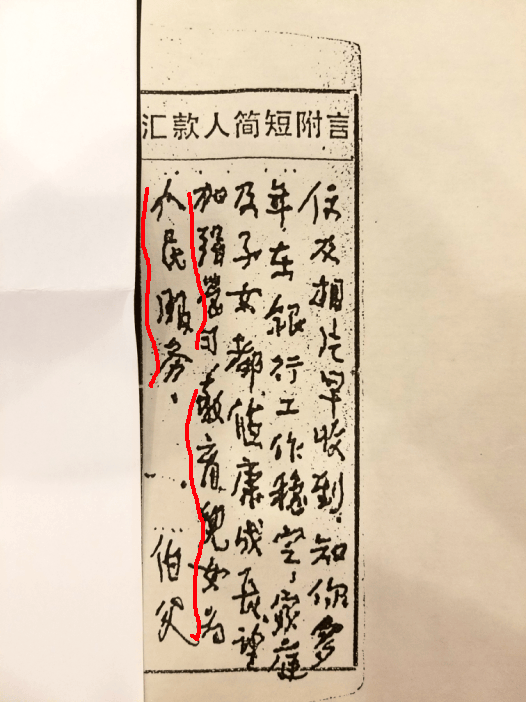 汇款人简短附言
信及相片早收到.知你多
年在銀行工作穩定,家庭
及子女都能康成長望
加强學习,教育兒女为
人民服务.
伯父